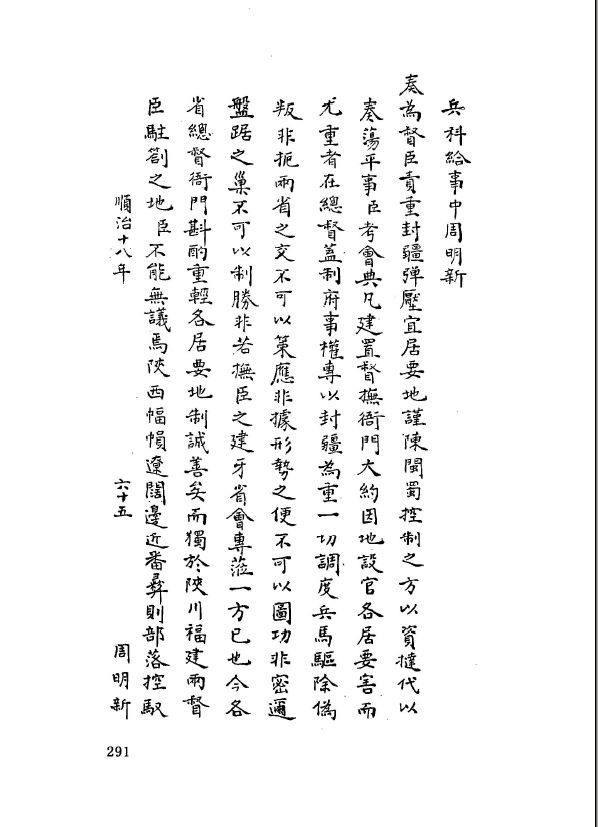 兵科給事中周明新
奏為督臣責重封疆彈壓宜居要地謹陳閩蜀控制之方以資撻伐以
奏蕩平事臣考會典凡建置督撫衙門大約因地設官各居要害而
尤重者在總督蓋制府事權專以封疆為重一切調度兵馬驅除偽
叛非扼兩省之交不可以策應非據形勢之便不可以圖功非密邇
盤踞之巢不可以制勝非若撫臣之建牙省會專蒞一方已也今各
省總督衙門斟酌重輕各居要地制誠善矣而獨於陝川福建兩督
臣駐劄之地臣不能無議焉陝西幅幀遼闊邊近番彞則部落控馭
順治十八年 六十五 周明新
291